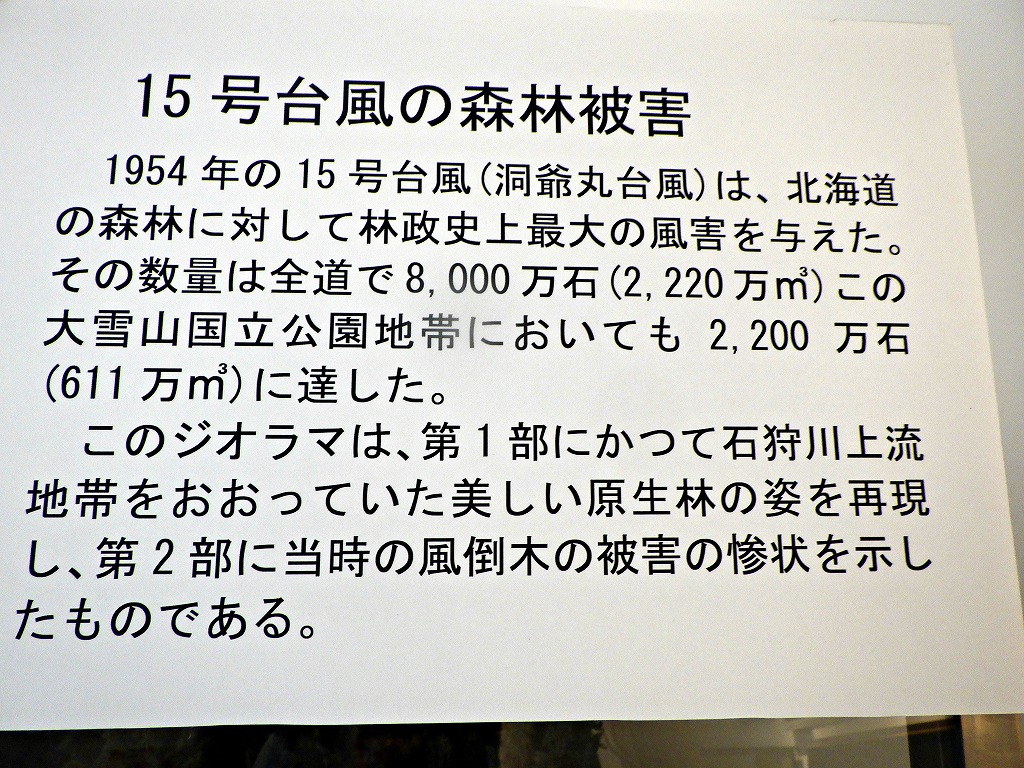 15号台風の森林被害
1954年の15号台風(洞爺丸台風)は、北海道
の森林に対して林政史上最大の風害を与えた。
その数量は全道で8,000万石(2,220万㎥)この
大雪山国立公園地帯においても 2,200 万石
(611万㎥)に達した。
このジオラマは、第1部にかつて石狩川上流
地帯をおおっていた美しい原生林の姿を再現
し、第2部に当時の風倒木の被害の惨状を示し
たものである。